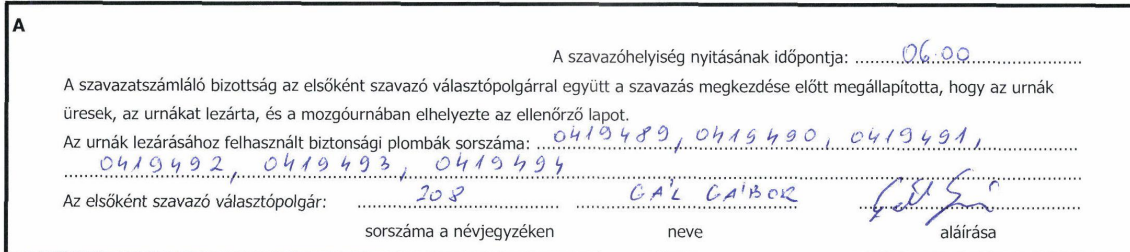 A
A szavazóhelyiség nyitásának időpontja: 06.00
A szavazatszámláló bizottság az elsőként szavazó választópolgárral együtt a szavazás megkezdése előtt megállapította, hogy az urnák
üresek, az urnákat lezárta, és a mozgóurnában elhelyezte az ellenőrző lapot.
Az urnák lezárásához felhasznált biztonsági plombák sorszáma: 0419489, 0419490, 0419491,
0419492, 0419493, 0419494
Az elsőként szavazó választópolgár: 208 GÁL GÁBOR
sorszáma a névjegyzéken neve aláírása